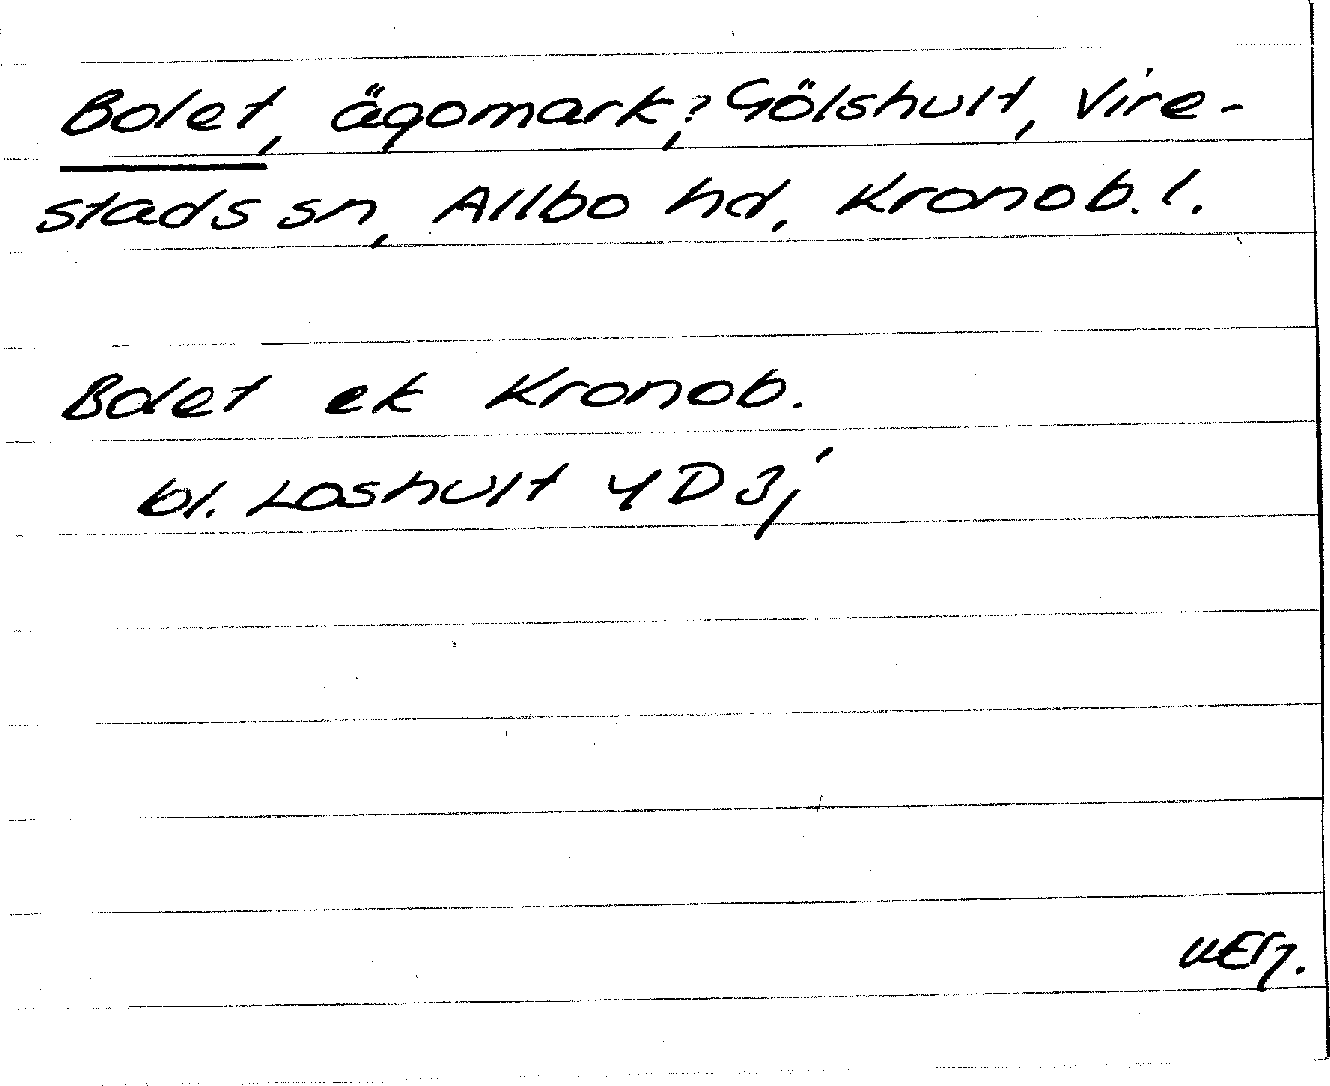 Bolet, ägomark?, Gölshult, Vire-
stads sn, Allbo hd, Kronob. l.
Bolet ek Kronob.
bl. Loshult 4D3j